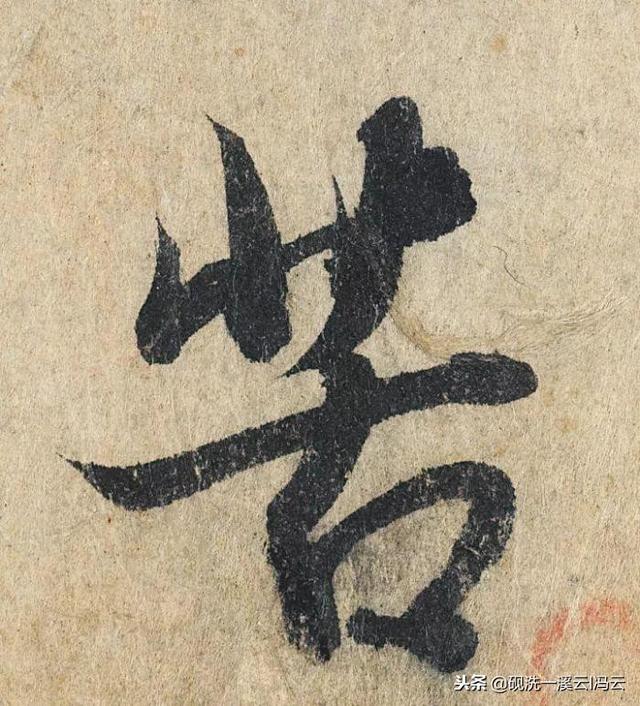 苦
头条@砚洗一溪云|冯云